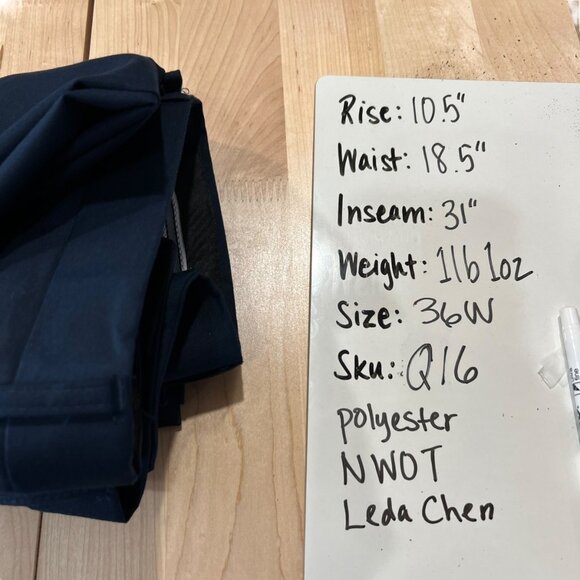 Rise: 10.5"
Waist: 18.5"
Inseam: 31"
Weight: 1lb 1oz
Size: 36W
Sku: Q16
polyester
NWOT
Leda Chen